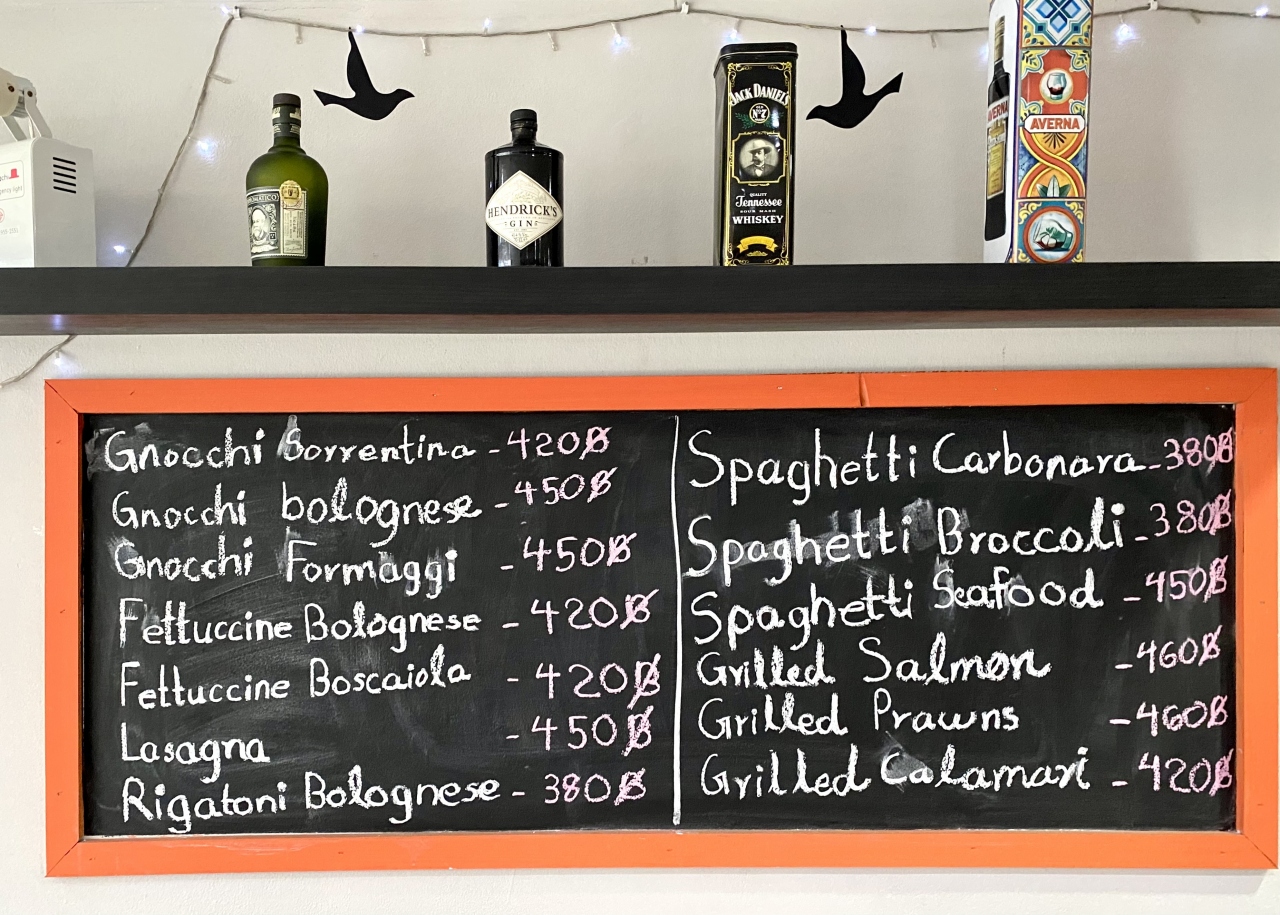 JACK DANIEL'S
OLD
No.7
QUALITY
Tennessee
SOUR MASH
WHISKEY
HENDRICK'S
GIN
AVERNA
AVERNA
Gnocchi Sorrentina - 420฿
Gnocchi bolognese - 450฿
Gnocchi Formaggi - 450฿
Fettuccine Bolognese - 420฿
Fettuccine Boscaiola - 420฿
Lasagna - 450฿
Rigatoni Bolognese - 380฿
Spaghetti Carbonara - 380฿
Spaghetti Broccoli - 380฿
Spaghetti Seafood - 450฿
Grilled Salmon - 460฿
Grilled Prawns - 460฿
Grilled Calamari - 420฿